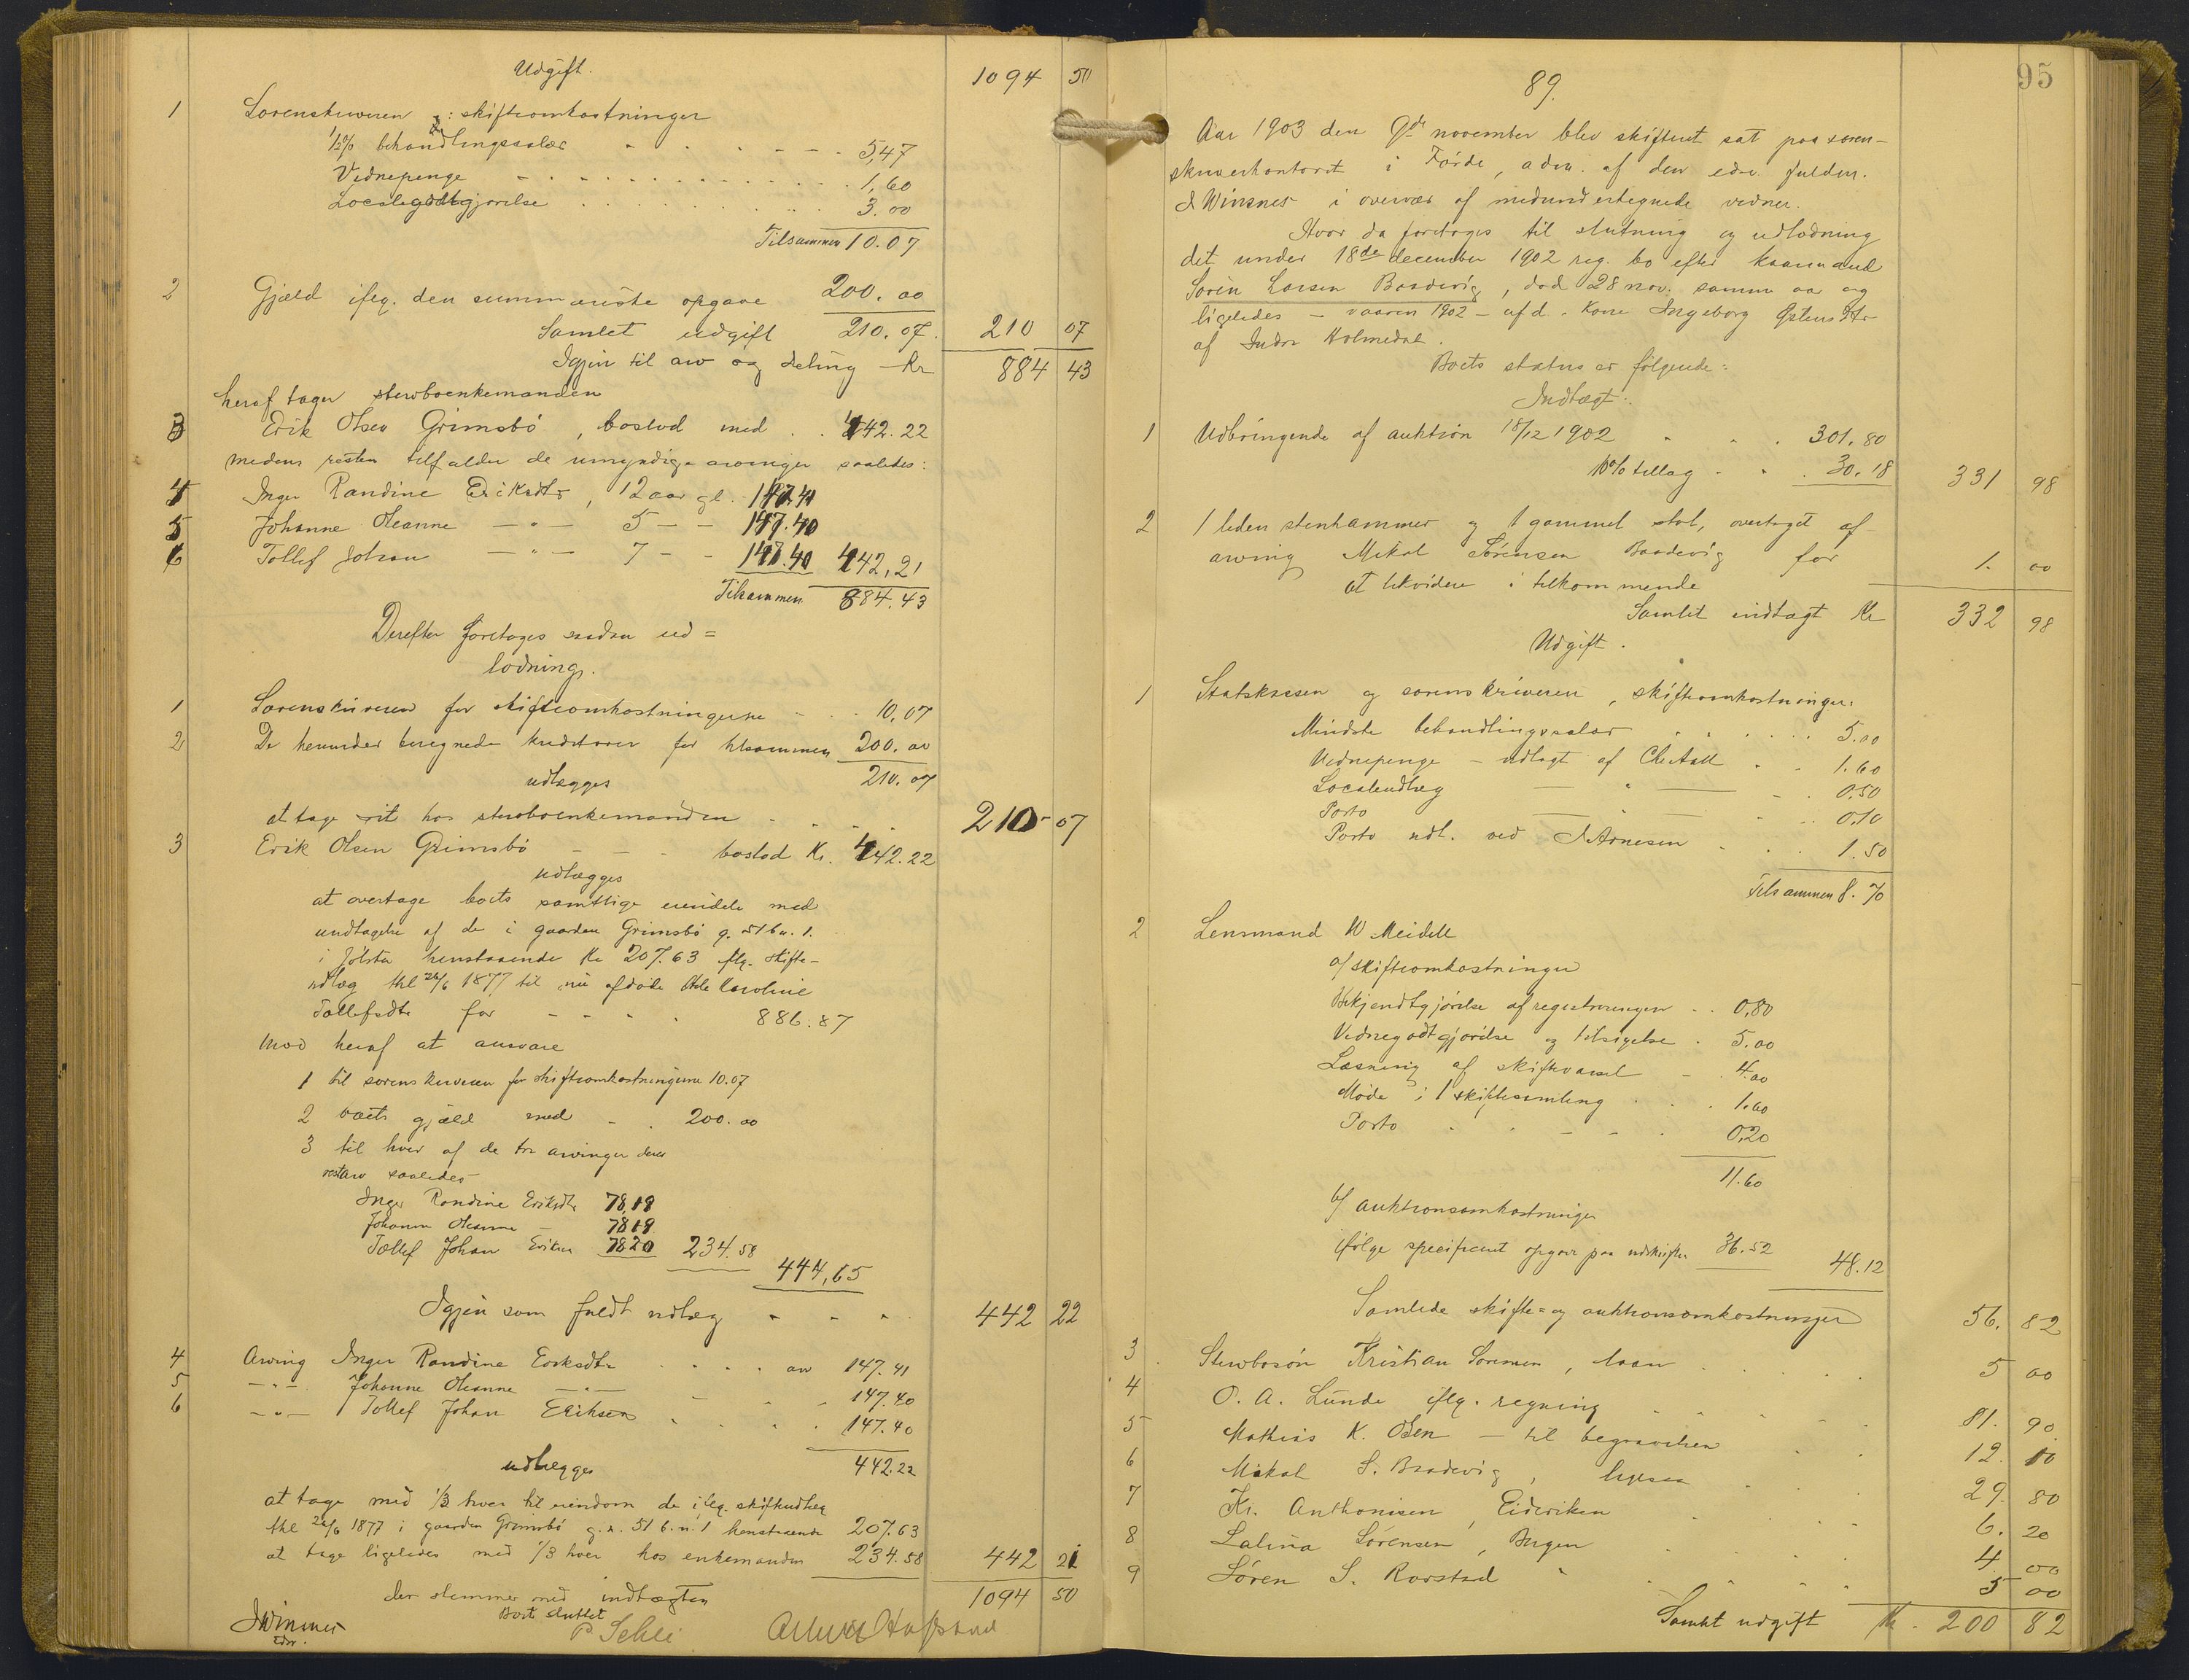 Udgift.
1094 50
1 Sorenskriveren : skifteomkostninger
1/2% behandlingssalær 5,47
Vidnepenge 1,60
Localegodtgjørelse 3.00
Tilsammen 10.07
2 Gjæld iflg. den summariske opgave 200.00
Samlet udgift 210.07. 210 07
Igjen til arv og deling Kr 884 43
heraf tager sterboenkemanden
3 Erik Olsen Grimsbö, boslod med 442.22
medens resten tilfalder de umyndige arvinger saaledes:
4 Inger Randine Eriksdtr, 12 aar gl. 147.41
5 Johanne Oleanne — " — 5 — - 147.40
6 Tollef Johan — " — 7 — - 147.40 442,21
Tilsammen 884.43
Derefter foretages saadan ud=
lodning.
1 Sorenskriveren for skifteomkostningerne 10,07
2 De herunder beregnede kreditorer for tilsammen 200.00
udlægges 210.07
at tage sit hos sterboenkemanden 210 07
3 Erik Olsen Grimsbö boslod Kr. 442.22
udlægges
at overtage boets samtlige eiendele med
undtagelse af de i gaarden Grimsbö g. n 51 b. n. 1.
i Jölster henstaaende Kr 207.63 flg. skifte-
udlæg thl 26/6 1877 til nu afdøde Karoline
Tollefsdtr for 886.87
mod heraf at ansvare
1 til sorenskriveren for skifteomkostningerne 10.07
2 boets gjæld med 200.00
3 til hver af de tre arvinger deres
restarv saaledes
Inger Randine Eriksdtr 78,19
Johanne Oleanne — 78 19
Tollef Johan Eriksen 78 20 234.58
444,65
Igjen som fuldt udlæg 442 22
4 Arving Inger Randine Eriksdtr arv 147.41
5 — " — Johanne Oleanne — " — 147.40
6 — " — Tollef Johan Eriksen 147.40
udlægges 442.22
at tage med 1/3 hver til eiendom de iflg. skifteudlæg
thl 26/6 1877 i gaarden Grimsbö g. n. 51 b. n. 1 henstaaende 207.63
at tage ligeledes med 1/3 hver hos enkemanden 234.58 442 21
der stemmer med indtægten 1094 50
Boet sluttet
JWinsnes
edsv.
P Sehli
95
89.
Aar 1903 den 9de november blev skifteret sat paa soren-
skriverkontoret i Förde, adm. af den edsv. fuldm.
J Winsnes i overvær af medundertegnede vidner.
Hvor da foretages til slutning og udlodning
det under 18de december 1902 reg. bo efter kaarmand
Sören Larsen Baadevig, död 28 nov. samme aar og
ligeledes — vaaren 1902 — afd. Kone Ingeborg
af Indre Holmedal.
Boets status er følgende:
Indtægt:
1 Udbringende af auktion 18/12 1902 301,80
10% tillæg 30.18 331 98
2 1 liden stenhammer og 1 gammel stol, overtaget af
arving Mikal Sörensen Baadevig for 1. 00
at likvidere i tilkommende
Samlet indtægt Kr 332 98
Udgift.
1 Statskassen og sorenskriveren, skifteomkostninger:
Mindste behandlingssalær 5.00
Vidnepenge — udlagt af Chr Aall 1.60
Localeudlæg — " — 0,50
Porto — " — 0,10
Porto udl. ved J Arnesen 1.50
Tilsammen 8.70
2 Lensmand W Meidell
a/ skifteomkostninger
Bekjendtgjörelse af registreringen 0,80
Vidnegodtgjörelse og tilsigelse 5.00
Læsning af skiftevarsel 4.00
Möde i 1 skiftesamling 1.60
Porto 0,20
11.60
b/ auktionsomkostninger
ifölge specificeret opgave paa udskriften 36.52 48.12
Samlede skifte= og auktionsomkostninger 56. 82
3 Sterbosön Kristian Sörensen, laan 5 00
4 O. A. Lunde iflg. regning 81. 90
5 Mathias K. Osen — til begravelsen 12. 10
6 Mikal S. Baadevig, ligesaa 29. 80
7 Kr. Anthonisen, Eideviken 6. 20
8 Lalina Sörensen, Bergen 4 00
9 Sören S. Rorstad 5 00
Samlet udgift Kr. 200 82